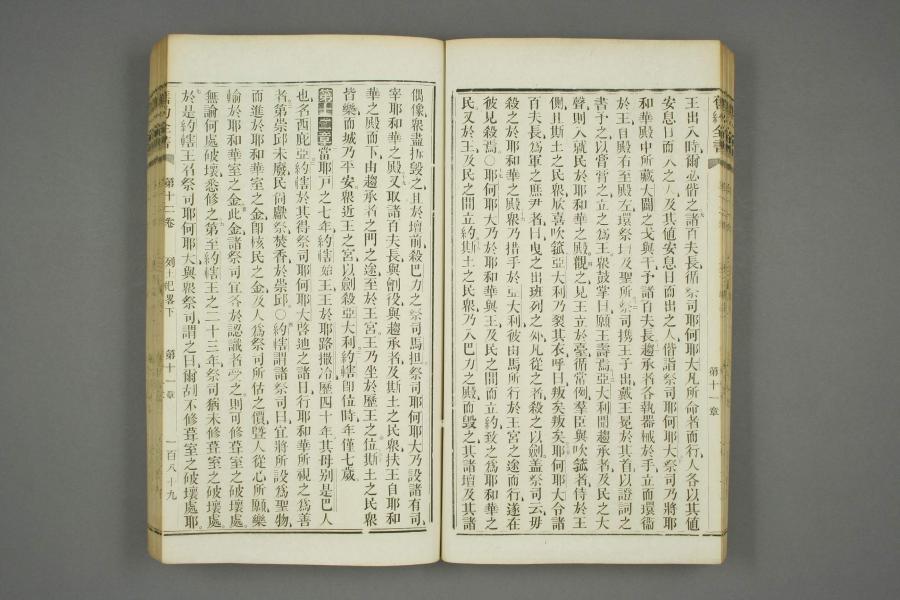 王出入時爾必偕之諸百夫長循祭司耶何耶大凡所命者而行人各以其値
安息日而入之人及其値安息日而出之人偕詣祭司耶何耶大祭司乃將耶
和華殿中所藏大闢之戈與干予諸百夫長趨承者各執器械於手立而環衞
於王自殿右至殿左環祭坛及聖所祭司携王子出戴王冕於其首以證詞之
書予之以膏膏之立之為王衆鼓掌曰願王壽焉亞大利聞趨承者及民之大
聲則入就民於耶和華之殿觀之見王立於臺循常例羣臣與吹箛者侍於王
側且斯土之民衆欣喜吹箛亞大利乃裂其衣呼曰叛矣叛矣耶何耶大令諸
百夫長為軍之蒞尹者曰曳之出班列之外凡從之者殺之以劍盖祭司云毋
殺之於耶和華之殿衆乃措手於亞大利彼由馬所行於王宮之途而行遂在
彼見殺焉○耶何耶大乃於耶和華與王及民之間而立約致之為耶和華之
民又於王及民之間立約斯土之民衆乃入巴力之殿而毀之其諸壇及其諸
第十一章
偶像衆盡拆毀之且於壇前殺巴力之祭司馬担祭司耶何耶大乃設諸有司
宰耶和華之殿又取諸百夫長與劊役與趨承者及斯土之民衆扶王自耶和
華之殿而下由趨承者之門之途至於王宮王乃坐於歷王之位斯土之民衆
皆樂而城乃平安衆近王之宮以劍殺亞大利約轄卽位時年僅七歲
第十二章當耶戶之七年約轄始王王於耶路撒冷歷四十年其母别是巴人
也名西庇亞約轄於其得祭司耶何耶大啓迪之諸日行耶和華所視之為善
者第崇邱未廢民尚獻祭焚香於崇邱○約轄謂諸祭司曰宜將所設為聖物
而進於耶和華室之金卽核民之金及人為祭司所估之價暨人從心所願樂
輸於耶和華室之金此金諸祭司宜各於認識者受之則可修葺室之破壞處
無論何處破壞悉修之第至約轄王之二十三年祭司猶未修葺室之破壞處
於是約轄王召祭司耶何耶大與衆祭司謂之曰爾胡不修葺室之破壞處耶
第十二卷 列王紀畧下 第十一章 一百八十九